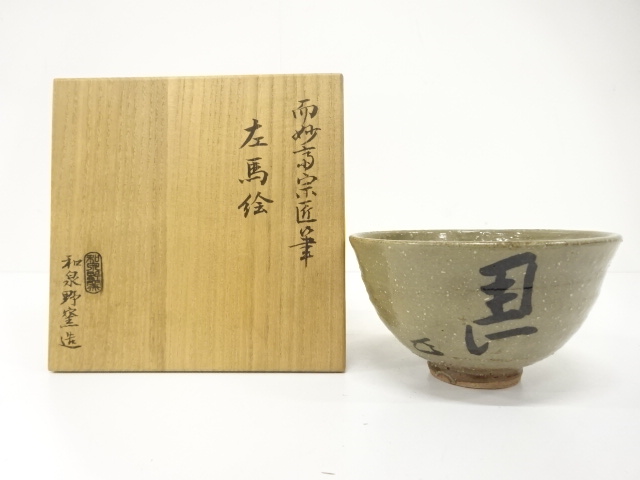 而妙斎宗匠筆
左馬絵
和泉野窯造